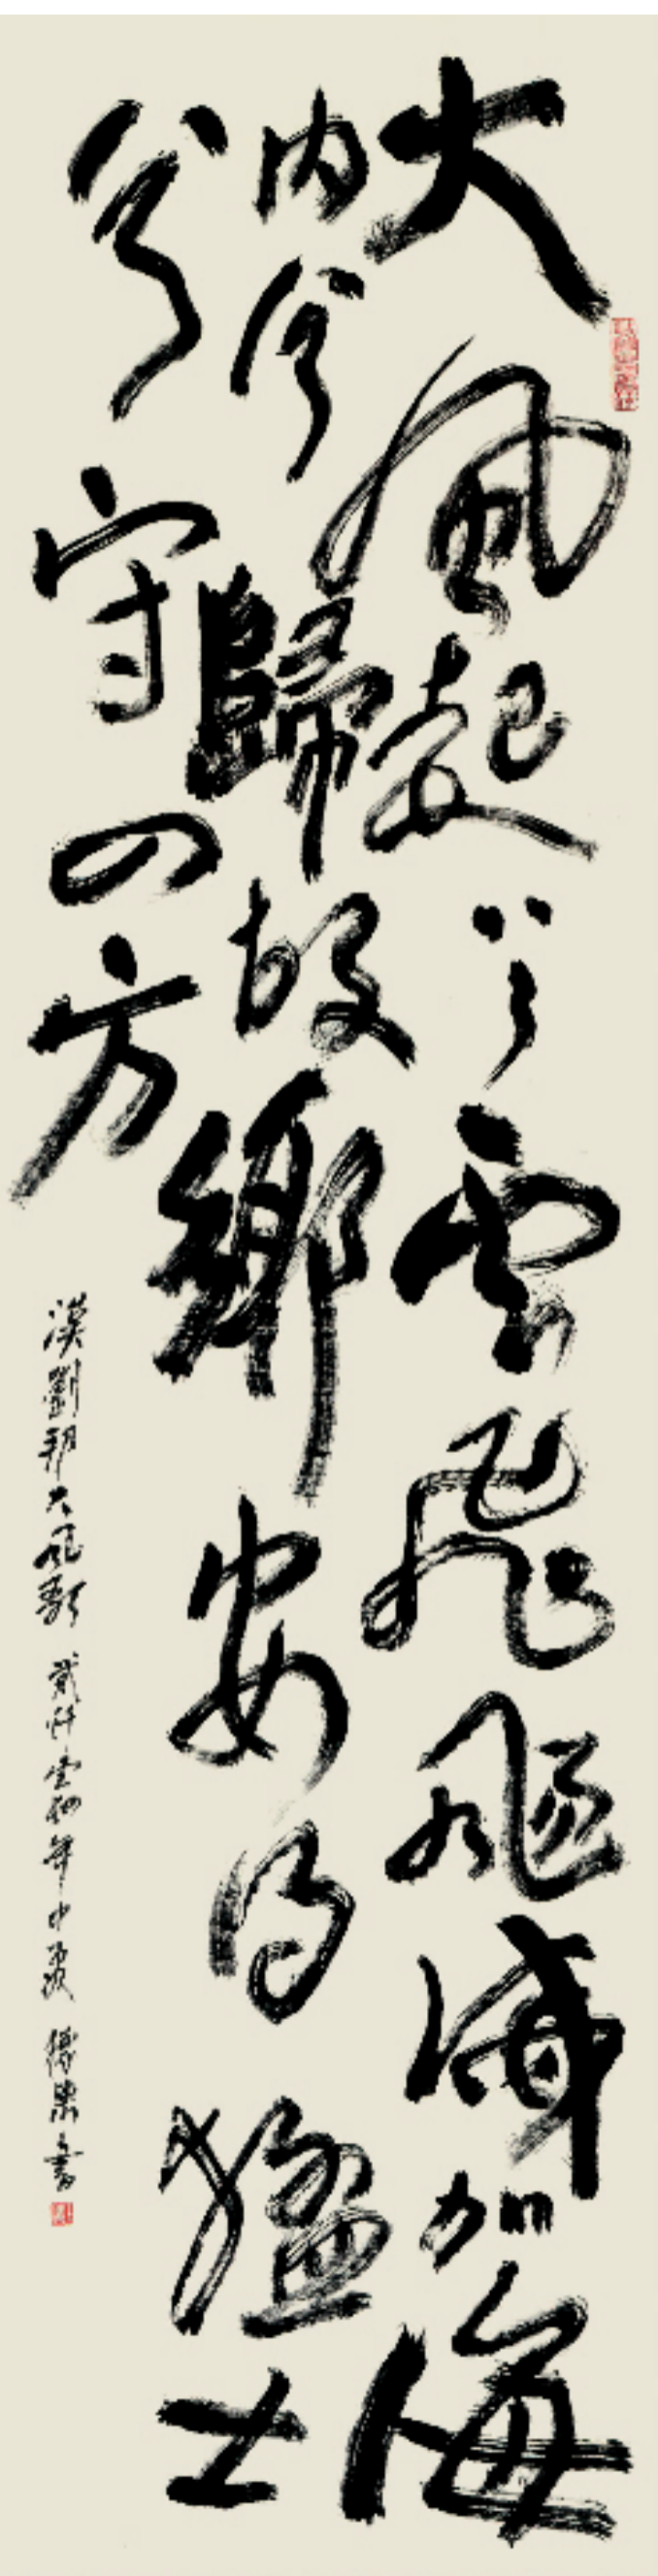 大風起兮雲飛颺威加海
内兮歸故鄉安得猛士
兮守四方
漢劉邦大風歌 貳仟零年中夏書